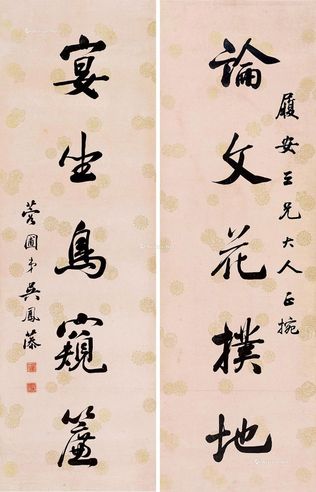 履安三兄大人正捥
論文花撲地
宴坐鳥窺簾
菅圃弟吳鳳藻